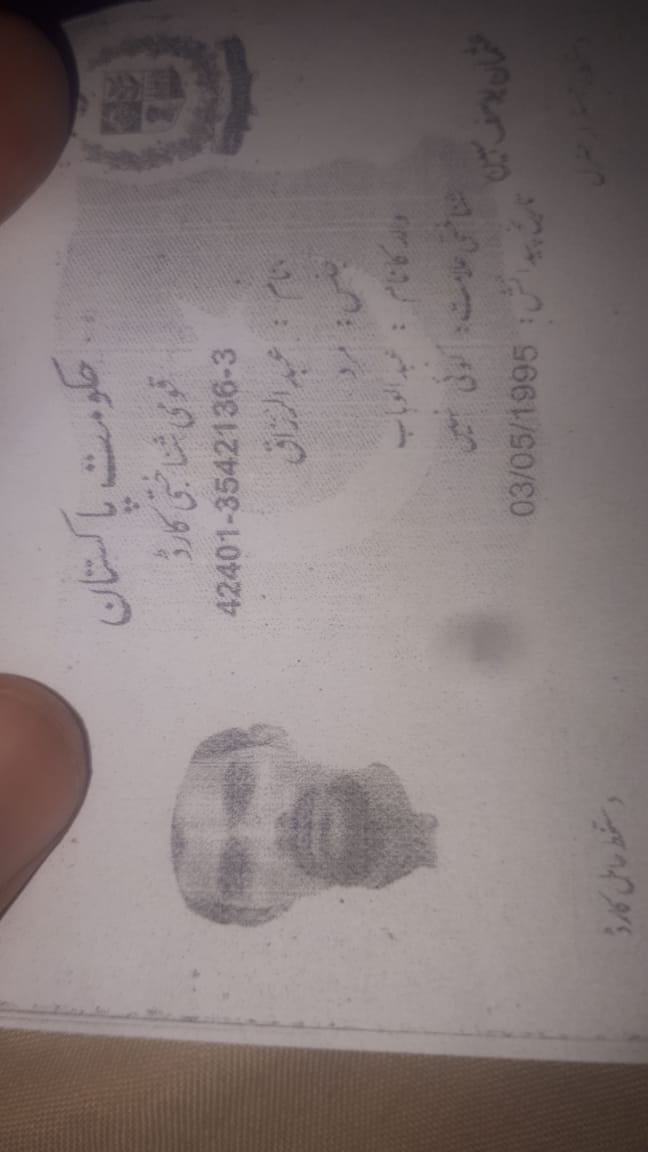 حکومت پاکستان
قومی شناختی کارڈ
42401-3542136-3
نام : عبدالرزاق
جنس : مرد
ولد کا نام : عبدالوہاب
شناختی علامت : کوئی نہیں
تاریخ پیدائش : 03/05/1995
دستخط حامل کارڈ